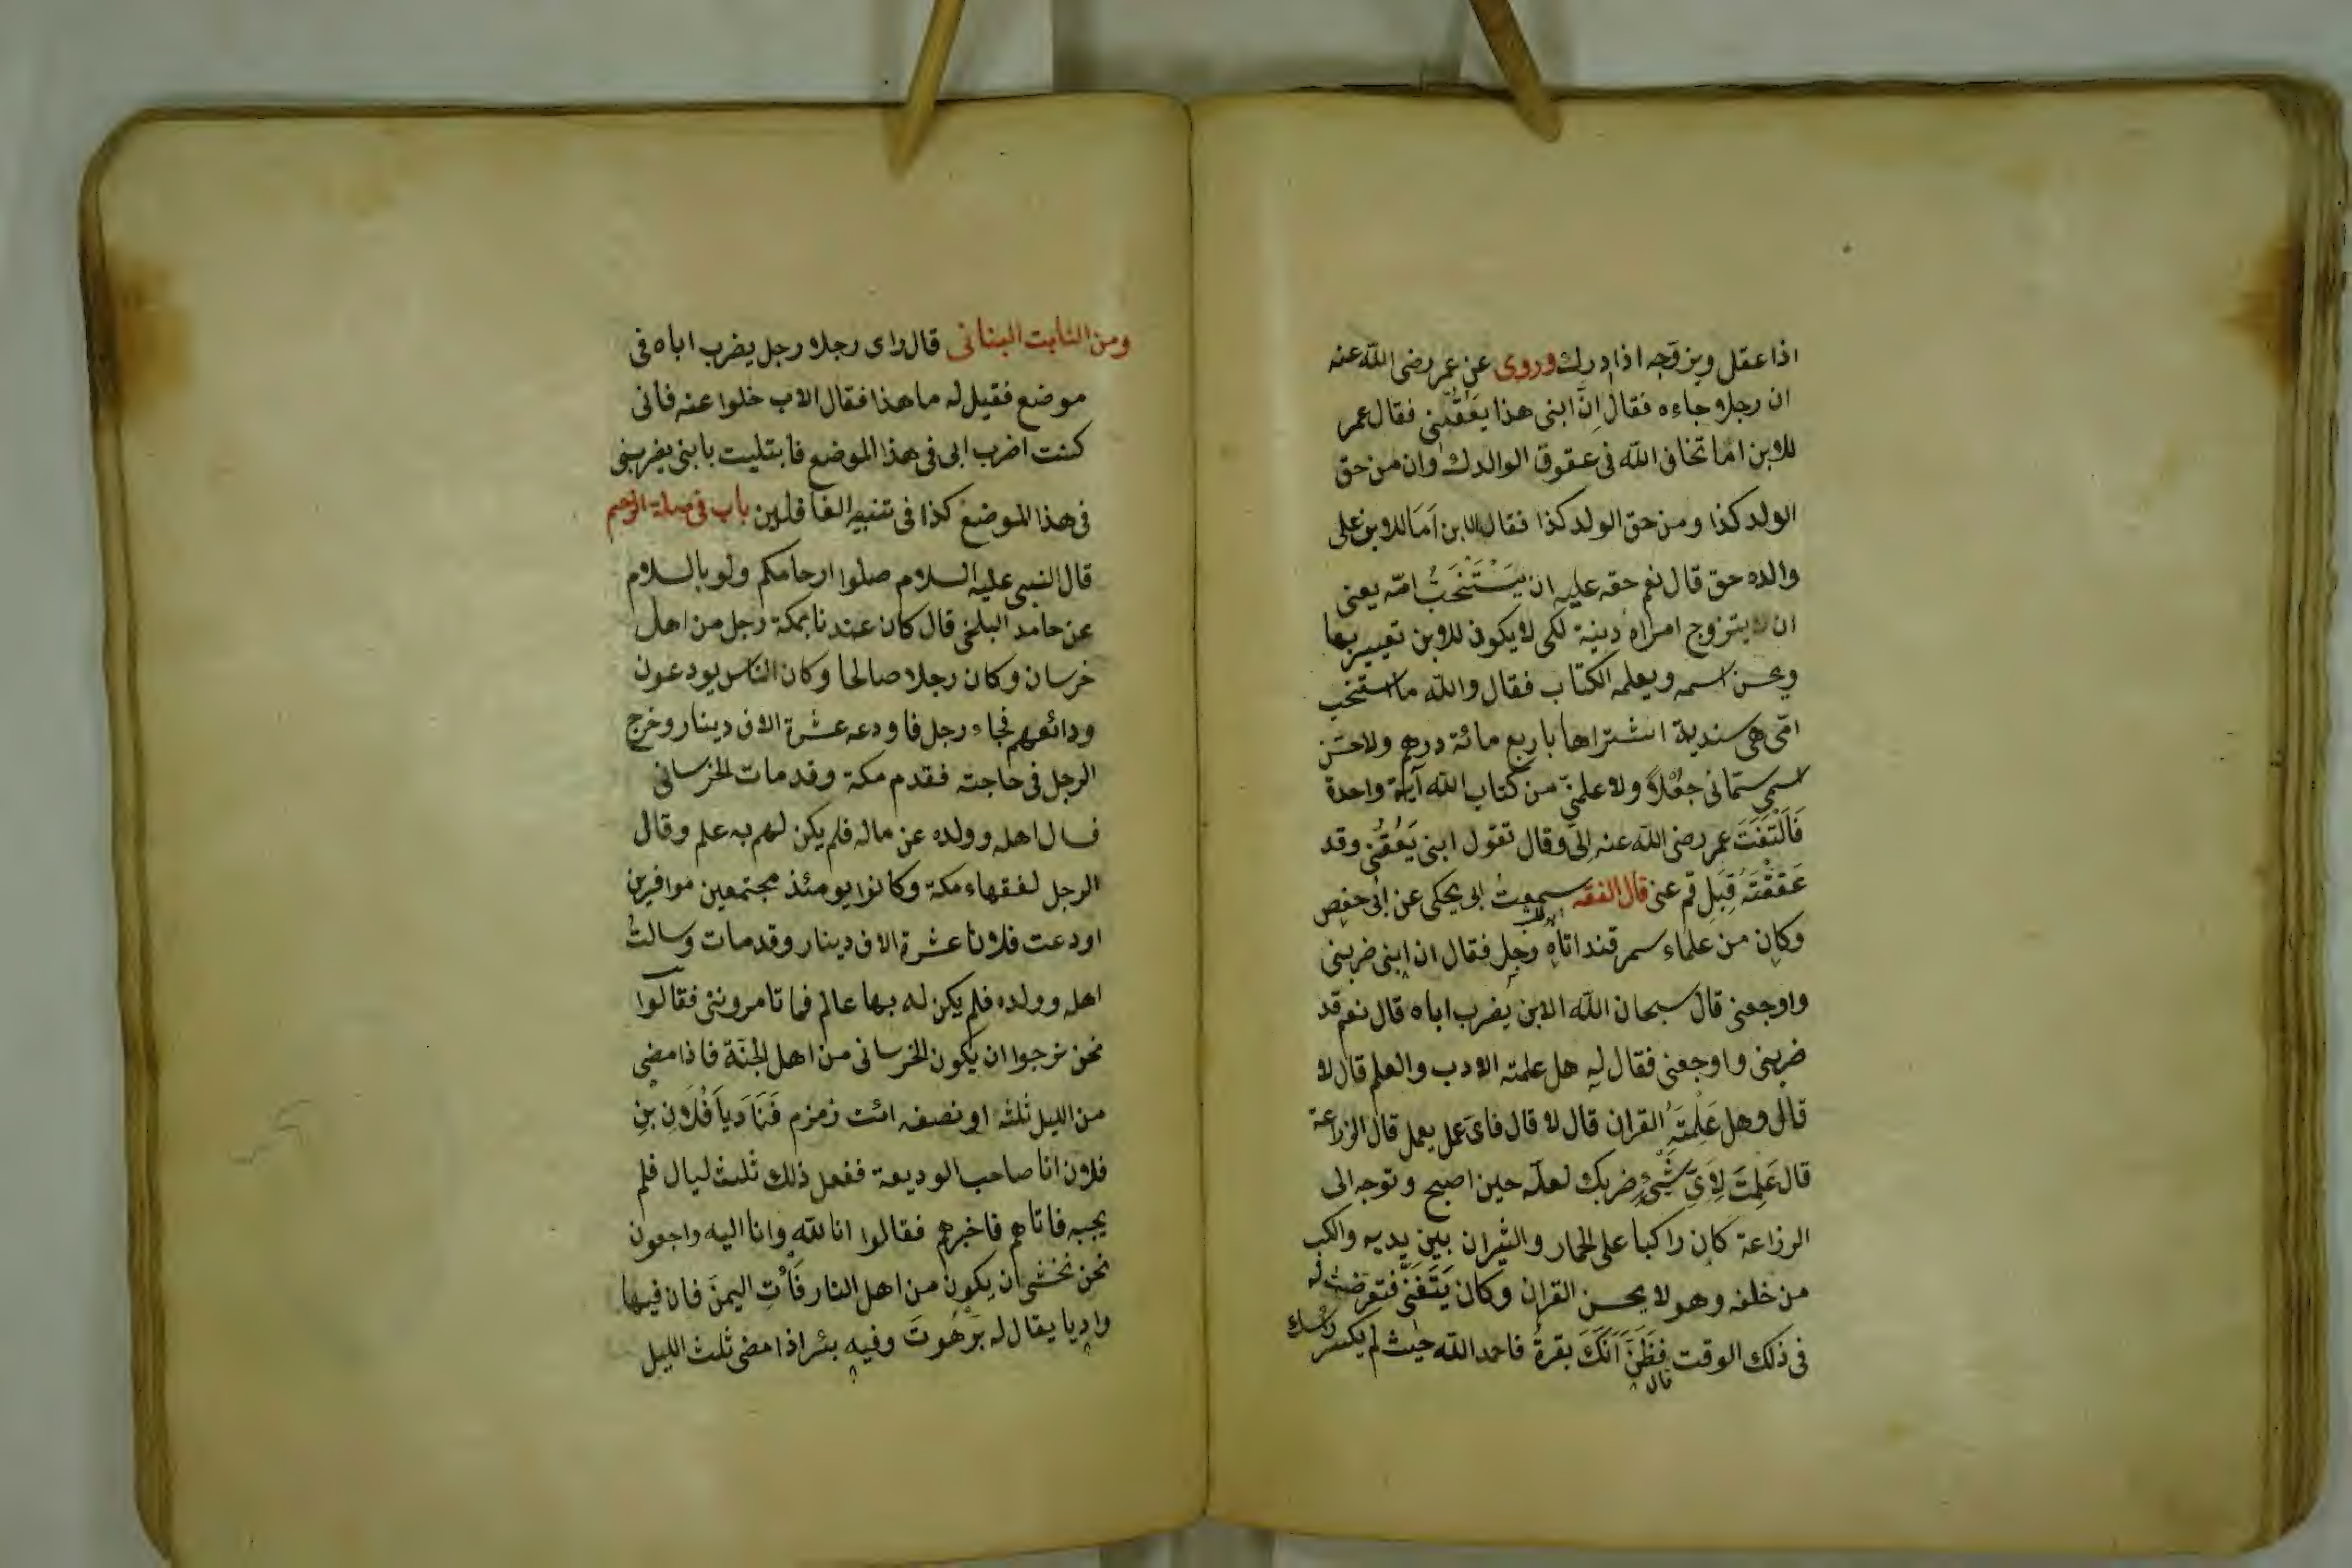 اذا عقل ويزوجه اذا ادرك وروى عن عمر رضى الله عنه
ان رجلا جاءه فقال اِنَّ ابنى هذا يَعُقُّنى فقال عمر
للابن اما تخاف الله فى عقوق الوالدك وان من حق
الولد كذا ومن حق الولد كذا فقال الابن اَمَا للابن على
والده حق قال نعم حقه عليه ان يَسْتَنْخَبُ امّه يعنى
ان لا يتزوج امراة دينة لكى لا يكون للابن تعيير بها
ويحسن اسمه ويعلمه الكتاب فقال والله ما استنخب
امّى هى سندية اشتراها باربع مائة درهم ولا حسّن
اسمى ستمانى جُعْلاً ولا علمنى من كتاب الله آية واحدة
فَالْتَفَتَ عمر رضى الله عنه اِلىّ وقال تقول ابنى يَعُقُّنى وقد
عَقَقْتَهُ قِبَلِ قم عنى قال الفقه سمعتُ ابى يحكى عن ابى حفص
وكان من علماء سمرقند اتاه رجل فقال ان ابنى ضربنى
واوجعنى قال سبحان الله الابن يضرب اباه قال نعم قد
ضربنى واوجعنى فقال له هل علمته الادب والعلم قال لا
قال وهل عَلِمْتَهُ القران قال لا قال فاى عمل يعمل قال الزراعة
قال عَلِمْتَ لِاَىِّ شَىْءٍ ضربك لعله حين اصبح وتوجه الى
الرزاعة كان راكبا على الحمار والثيران بين يديه والكب
من خلفه وهو لا يحسن القران وكان يَتَغَنّى فتعرضت له
فى ذلك الوقت فظَنَّ اَنَّكَ بقرةُ فاحمد الله حيث لم يكسر راسك
قال
ومن الثابت البنانى قال راى رجلا رجل يضرب اباه فى
موضع فقيل له ما هذا فقال الاب خلوا عنه فانى
كنت اضرب ابى فى هذا الموضع فابتليت بابنى يضربنى
فى هذا الموضع كذا فى تنبيه الغافلين باب فى صلة الرحم
قال النبى عليه السلام صلوا ارحامكم ولو بالسلام
عن حامد البلخى قال كان عندنا بمكة رجل من اهل
خرسان وكان رجلا صالحا وكان الناس يودعون
ودائعهم فجاء رجل فاودعه عشرة الاف دينار وخرج
الرجل فى حاجته فقدم مكة وقد مات الخرسانى
فسال اهله وولده عن ماله فلم يكن لهم به علم وقال
الرجل لفقهاء مكة وكانوا يومئذ مجتمعين موافرين
اودعت فلانا عشرة الاف دينار وقد مات وسالتُ
اهله وولده فلم يكن له بها عالم فما تامروننى فقالوا
نحن نرجوا ان يكون الخرسانى من اهل الجنة فاذا مضى
من الليل ثلثه او نصفه ائت زمزم فَنَادِيَا فُلَانِ بنِ
فلان انا صاحب الوديعة ففعل ذلك ثلث ليال فلم
يجبه فاتاهم فاخبرهم فقالوا انا لله وانا اليه واجعون
نحن نخشى ان يكون من اهل النار فَأْتِ اليمن فان فيها
واديا يقال له بَرْهُوتَ وفيه بئر اذا مضى ثلث الليل